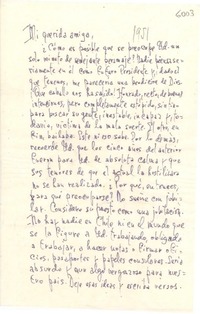 6003
1951
Mi querida amiga,
¿Cómo es posible que se preocupe Ud. un
solo minuto de semejante personaje? Nadie piensa se-
riamente en él como futuro Presidente y, dado el
que tenemos, me parecería una bendición de Dios
Este caballo nos ha salido honrado, recto, de buenas
intenciones, pero completamente estúpido, sin tino
para buscar su gente; inestable, incapaz y, to-
davía, víctima de la mala suerte. El otro, en
fin, bailaba. Este ni eso sabe. Por lo demás,
recuerde Ud. que los cinco años del anterior
fueron para Ud. de absoluta calma y que
sus temores de que el actual la hostilizara
no se han realizado. ¿Por qué, entonces,
para qué preocuparse? No sueñe con jubi-
lar. Considere su puesto como una jubilación.
No hay nadie en Chile ni en el mundo que
se la figure a Ud. trabajando, obligada
a trabajar, o hacer notas o firmar ofi-
cios, pasaportes y papeles consulares. Sería
absurdo y aun algo vergonzoso para nues-
tro país. Deje esas ideas y escriba versos.